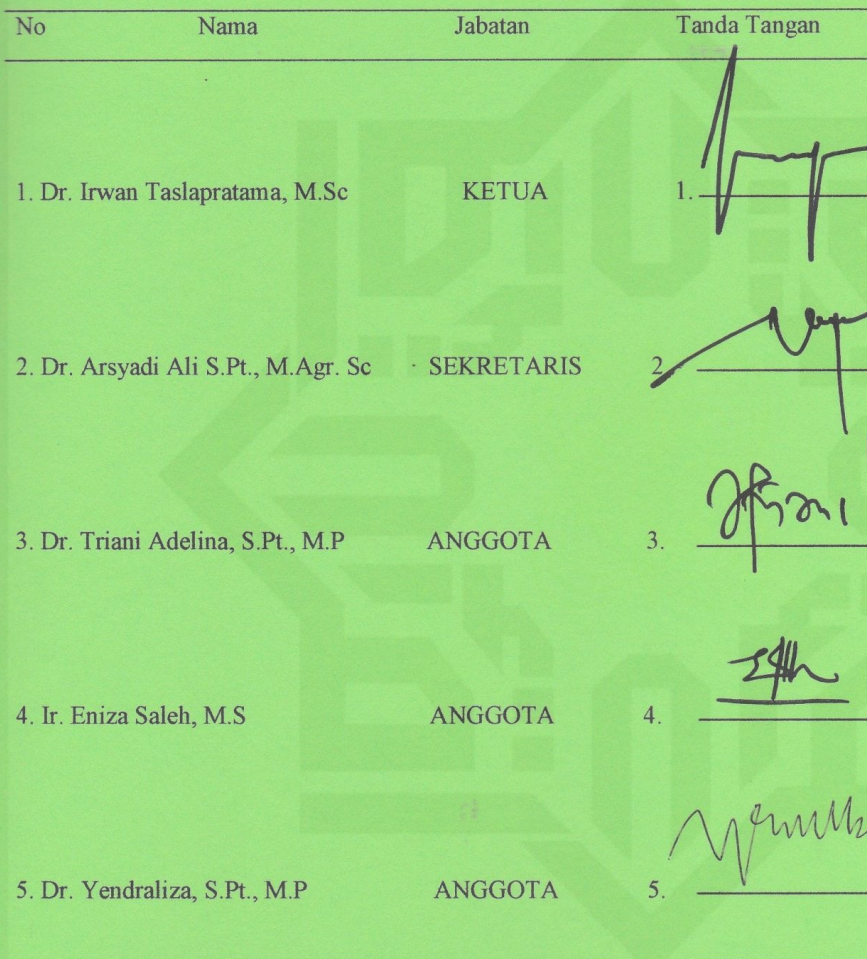 No Nama Jabatan Tanda Tangan
1. Dr. Irwan Taslapratama, M.Sc KETUA 1.
2. Dr. Arsyadi Ali S.Pt., M.Agr. Sc SEKRETARIS 2
3. Dr. Triani Adelina, S.Pt., M.P ANGGOTA 3.
4. Ir. Eniza Saleh, M.S ANGGOTA 4.
5. Dr. Yendraliza, S.Pt., M.P ANGGOTA 5.